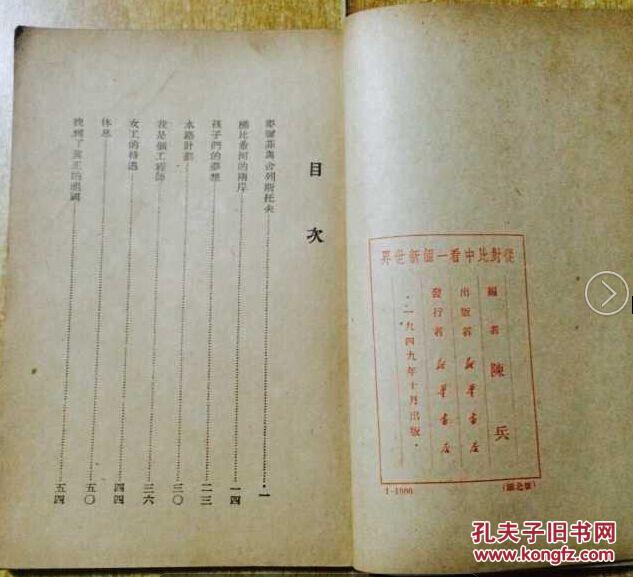 從對比中看一個新世界
編者 陳兵
出版者 新華書店
發行者 新華書店
一九四九年十月出版
1-1000
目次
一
梯比香河的兩岸 一四
孩子們的夢想 二三
水路計劃 三〇
我是個工程師 三六
女工的待遇 四四
休息 五〇
找到了真正的祖國 五四
孔夫子旧书网
www.kongfz.com